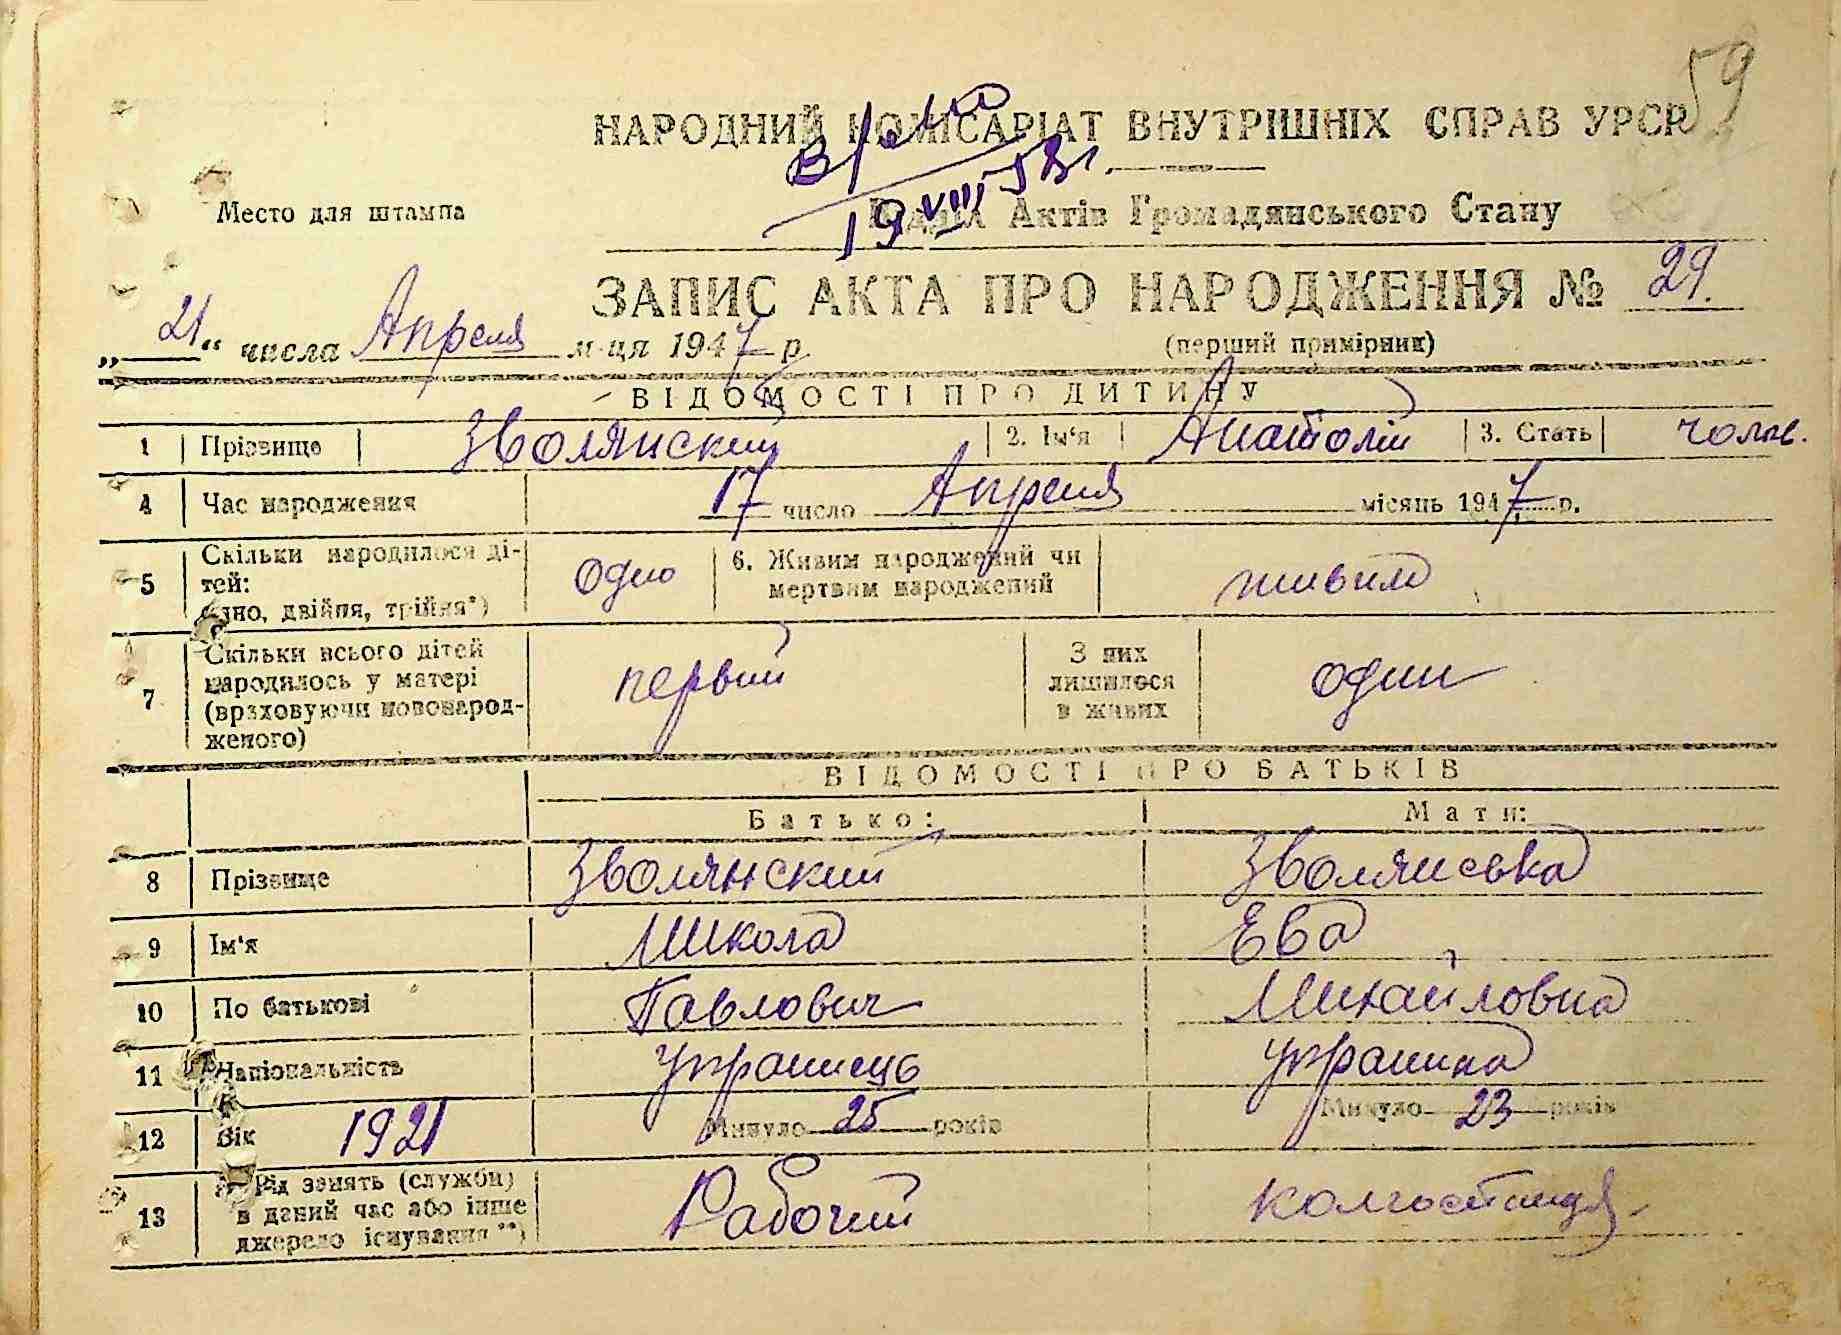 59
НАРОДНИЙ КОМІСАРІАТ ВНУТРІШНІХ СПРАВ УРСР
19 VIII 53г.
Место для штампа
Відділ Актів Громадянського Стану
ЗАПИС АКТА ПРО НАРОДЖЕННЯ № 29.
„21“ числа Апреля м-ця 1947 р.
(перший примірник)
ВІДОМОСТІ ПРО ДИТИНУ
1 Прізвище Зволянский 2. Ім'я Анатолій 3. Стать чолов.
4 Час народження 17 число Апреля місяць 1947 р.
5 Скільки народилося ді-
тей:
(одно, двійня, трійня*) одно 6. Живим народжений чи
мертвим народжений живим
7 Скільки всього дітей
народилось у матері
(враховуючи новонарод-
женого) первий З них
лишилося
в живих один
ВІДОМОСТІ ПРО БАТЬКІВ
Батько: Мати:
8 Прізвище Зволянский Зволянська
9 Ім'я Микола Ева
10 По батькові Павлович Михайловна
11 Національність українець українка
12 Вік 1921 Минуло 25 років Минуло 23 років
13 Рід занять (служби)
в даний час або інше
джерело існування **) Рабочий колгоспниця